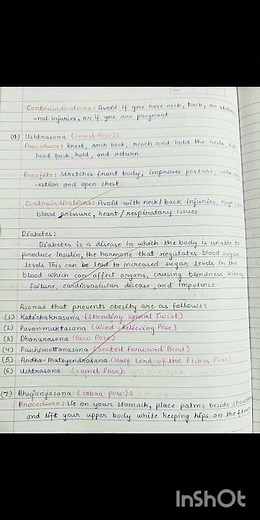 Contraindications: Avoid if you have neck, back, or abdom
-nal injuries, or if you are pregnant
Ushtrasana (camel Pose):
Procedure: kneel, arch back, reach and hold the heels,
head back, hold, and return
Benefits: Stretches front body, improves posture,
-estion and open chest
Contraindications: Avoid with neck/back injuries, high
blood pressure, heart/respiratory issues
Diabetes:
Diabetes is a disease in which the body is unable to
produce Insulin, the hormone that regulates blood sugar
levels. This can be lead to increased sugar levels in the
blood which can affect organs, causing blindness, kidney
failure, cardiovascular disease, and impotence
Asanas that prevents obesity are as follows:
(1) Katichakrasana (Standing Spinal Twist)
(2) Pavanmuktasana (Wind Relieving Pose)
(3) Dhanurasana (Bow Pose)
(4) Paschimottanasana (Seated Forward Bend)
(5) Ardha-Matsyendrasana (Half Lord of the Fishes Pose)
(6) Ushtrasana (camel Pose)
(7) Bhujangasana (cobra pose):
Procedure: Lie on your stomach, place palms beside shoulders
and lift your upper body while keeping hips on the floor
InShOt